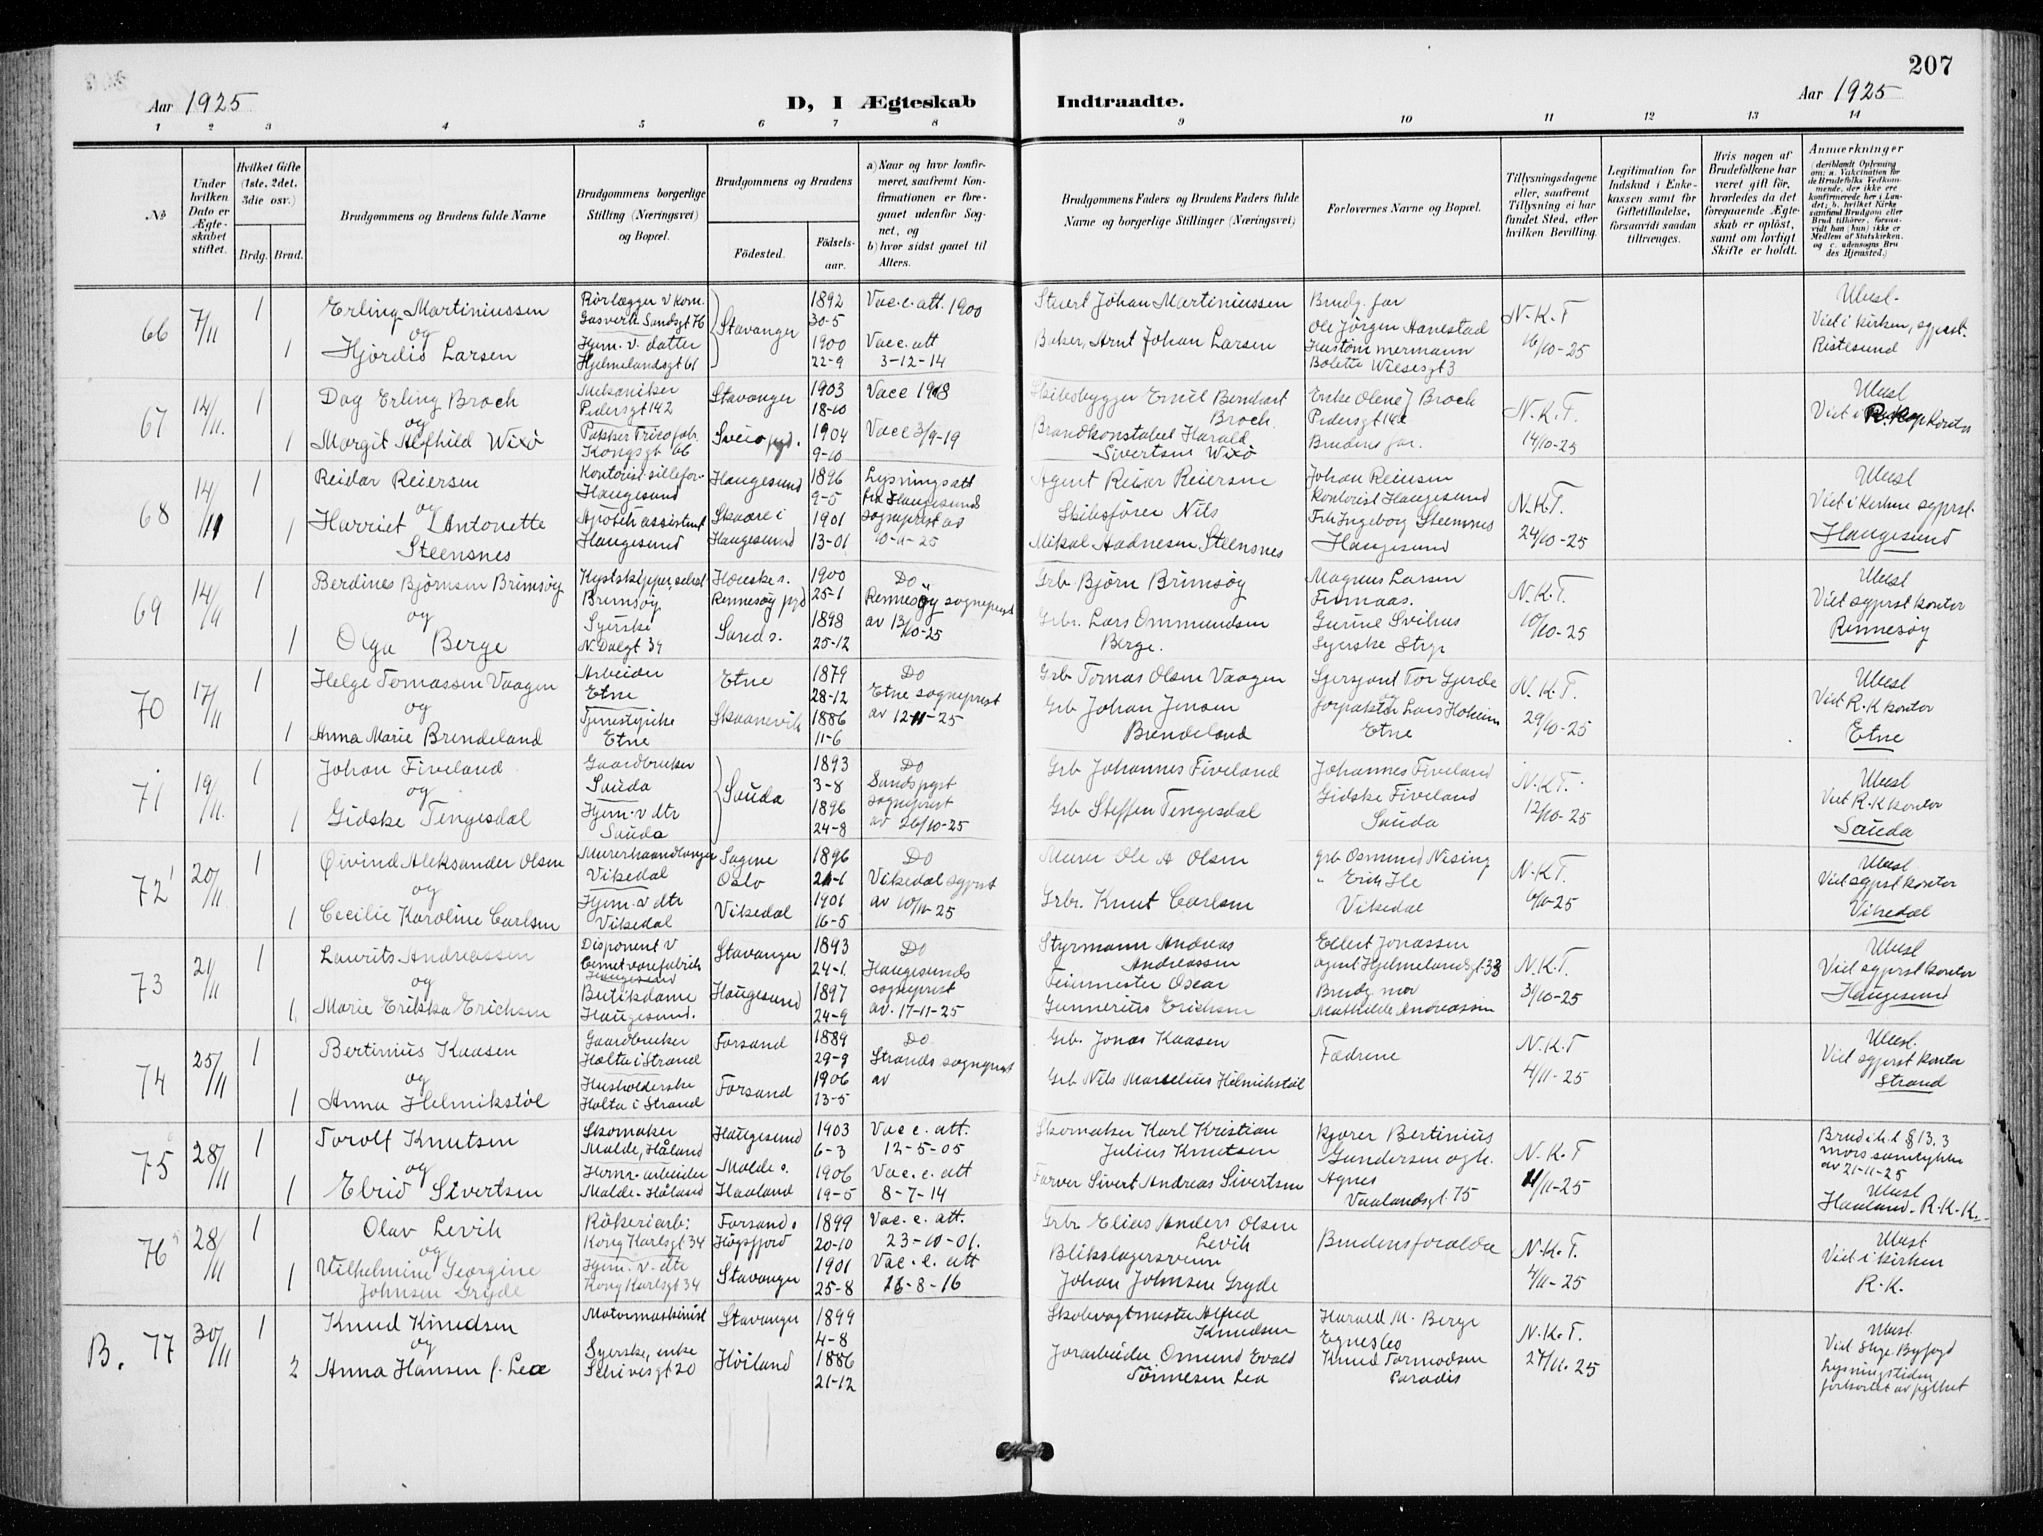 207
Aar 1925
D, I Ægteskab
Indtraadte.
Aar 1925
1 2 3 4 5 6 7 8 9 10 11 12 13 14
No
Under hvilken Dato er Ægteskabet stiftet.
Hvilket Gifte (1ste, 2det, 3die osv.)
Brdg. Brud.
Brudgommens og Brudens fulde Navne
Brudgommens borgerlige Stilling (Næringsvei) og Bopæl.
Brudgommens og Brudens
Födested.
Födselsaar.
a) Naar og hvor konfirmeret, saafremt Konfirmationen er foregaaet udenfor Sognet, og
b) hvor sidst gaaet til Alters.
Brudgommens Faders og Brudens Faders fulde Navne og borgerlige Stillinger (Næringsvei)
Forlovernes Navne og Bopæl.
Tillysningsdagene eller, saafremt Tillysning ei har fundet Sted, efter hvilken Bevilling.
Legitimation for Indskud i Enkekassen samt for Giftetilladelse, forsaavidt saadan tiltrænges.
Hvis nogen af Brudefolkene har været gift för, hvorledes da det foregaaende Ægteskab er oplöst, samt om lovligt Skifte er holdt.
Anmerkninger
(deriblandt Oplysning om: a. Vakcination for de Brudefolks Vedkommende, der ikke ere konfirmerede her i Landet; b. hvilket Kirkesamfund Brudgom eller Brud tilhörer, forsaavidt han (hun) ikke er Medlem af Statskirken, og c. udensogns Brudes Hjemsted.)
66 7/11 1 Erling Martiniussen
og
1 Hjørdis Larsen
Rörlægger v kom. Gasverk Sandsgt 76
Hjem. v. datter Hjelmelandsgt 61
Stavanger
1892 30-5
1900 22-9
Vac.c. att. 1900
Vac c. att 3-12-14
Stuert Johan Martiniussen
Baker, Arnt Johan Larsen
Brudg. far
Ole Jörgen Hanestad
Bolette Wilsesgt 3
N.K.T 16/10-25
Ubesl.
Viet i kirken, sgprst.
Ristesund
67 14/11. 1 Dag Erling Broch
og
1 Margit Alfhild Wixö
Mekaniker Pedersgt 142
Pakker Tricofabr. Kongsgt 66
Stavanger
Sveio pgd.
1903 18-10
1904 9-10
Vacc 1918
Vacc 3/9-19
Skibsbygger Emil Bernhart Broch.
Brandkonstabel Harald Sivertsen Wixö
Enke Olene J Broch
Pedersgt 142
Brudens far.
N.K.T. 14/10-25
Ubesl
68 14/11 1 Reidar Reiersen
og
1 Harriet Antonette
Steensnes
Haugesund
Apotekassistent Haugesund
Haugesund
Skaare i Haugesund
1896 9-5
1901 13-01
Lysningsatt fra Haugesund sogneprest av 10-11-25
Agent Reiar Reiersen
Skibsförer Nils
Mikal Aadnesen Steensnes
Johan Reiersen
kontorist Haugesund
Frk Ingeborg Steensnes
Haugesund
N.K.T. 24/10-25
Ubesl
Viet i kirken sgprst.
Haugesund
69 14/11 1 Berdines Bjørnsen Brimsöy
og
1 Olga Berge
Brimsöy
Syerske N. Dalgt 39
Rennesöy pgd
Sand s.
1900 25-1
1898 25-12
Do
Rennesöy sogneprest av 12/10-25
Grb. Bjørn Brimsøy
Grbr. Lars Ommundsen
Berge.
Magnus Larsen
Syerske Strp
N.K.T. 10/10-25
Ubesl
Viet sgprst kontor
Rennesøy
70 17/11 1 Helge Tomassen Vaagen
og
1 Anna Marie Brendeland
Arbeider Etne
Tjenestepike Etne
Etne
Skaanevik
1879 28-12
1886 11-6
Do
Etne sogneprest av 12-11-25
Grb Tomas Olsen Vaagen
Grb Johan Jensen
Brendeland
Sersjant Tor Gjerde
Forpakter Lars Hoheim
Etne
N.K.T. 29/10-25
Ubesl
Viet R.K kontor
Etne
71 19/11. 1 Johan Fiveland
og
1 Gidske Tengesdal
Gaardbruker Sauda
Hjem. v dtr Sauda
Sauda
1893 3-8
1896 24-8
Do
Sands pgst sogneprest av 26/10-25
Grb Johannes Fiveland
Grb Steffen Tengesdal
Johannes Fiveland
Gidske Fiveland
Sauda
N.K.T. 12/10-25
Ubesl
Viet R.K kontor
Sauda
72 20/11. 1 Øivind Aleksander Olsen
og
1 Cecilie Karoline Carlsen
Murerhaandlanger Vikedal
Hjem. v dtr Vikedal
Sagene Oslo
Vikedal
1896 21-1
1901 16-5
Do
Vikedal sgprst av 10/11-25
Murer Ole A Olsen
Grbr. Knut Carlsen
grb Osmund Nesing
" Erik Ile
Vikedal
N.K.T. 6/11-25
Ubesl
Viet sgprst kontor
Vikedal
73 21/11 1 Laurits Andreassen
og
1 Marie Eriksa Erichsen
Disponent v Cementvarefabrik Haugesund
Butikdame Haugesund.
Stavanger
Haugesund
1893 24-1.
1897 24-9
Do
Haugesunds sogneprest av. 17-11-25
Styrmann Andreas
Andreassen
Feiermester Oscar
Gunnerius Erichsen
Ellert Jonassen
agent Hjelmelandsgt 33
Brudg mor
Mathilde Andreassen
N.K.T. 31/10-25
Ubesl
Viet sgprst kontor
Haugesund
74 25/11 1 Bertinius Kaasen
og
1 Anna Helmikstöl
Gaardbruker Holta i Strand
Husholderske Holta i Strand
Forsand
Forsand
1889 29-9
1906 13-5
Do
Strands sogneprest av
Grb. Jonas Kaasen
Grb Nils Marselius Helmikstöl
Fædrene
N.K.T 4/11-25
Ubesl.
Viet sgprst kontor
Strand
75 28/11 1 Torolf Knutsen
og
1 Ebrid Sivertsen
Skomaker Malde, Håland
Herm. arbeider Malde - Håland
Haugesund
Malde s. Haaland
1903 6-3
1906 19-5
Vac c. att. 12-5-05
Vac. c. att 8-7-14
Skomaker Karl Kristian
Julius Knutsen
Farver Sivert Andreas Sivertsen
Kjører Bertinius
Gundersen og h.
Agnes
Vaalandsgt. 75
N.K.T 11/11-25
Brud i h.t § 13.3
mors samtykke
av 21-11-25
Ubesl
Haaland. R.K.K.
76 28/11 1 Olav Levik
og
1 Vilhelmine Georgine
Johnsen Gryde
Rökeriarb: Kong Karlsgt 34
Hjem. v. dtr Kong Karlsgt 34
Forsand s Högsfjord
Stavanger
1899 20-10
1901 25-8
Vac. c. att. 23-10-01.
Vac. c. att 26-8-16
Grbr Elias Anders Olsen
Levik
Blikslagersvenn
Johan Johnsen Gryde
Brudens foreldre
N.K.T. 4/11-25
Ubesl
Viet i kirken
R.K.
B. 77 30/11 1 Knud Knudsen
og
2 Anna Hansen f. Lea
Motormaskinist
Syerske, enke Schivesgt 20
Stavanger
Höiland
1899 4-8
1886 21-12
Skolevagtmester Alfred
Knudsen
Jorarbeider Osmund Evald
Tönnesen Lea
Harald M. Berge
Egnes Leo
Knud Tormodsen
Paradis
N.K.T. 27/11.25
Ubesl.
Viet Stvgr. Byfogd
Lysningstiden
forkortet av fylket